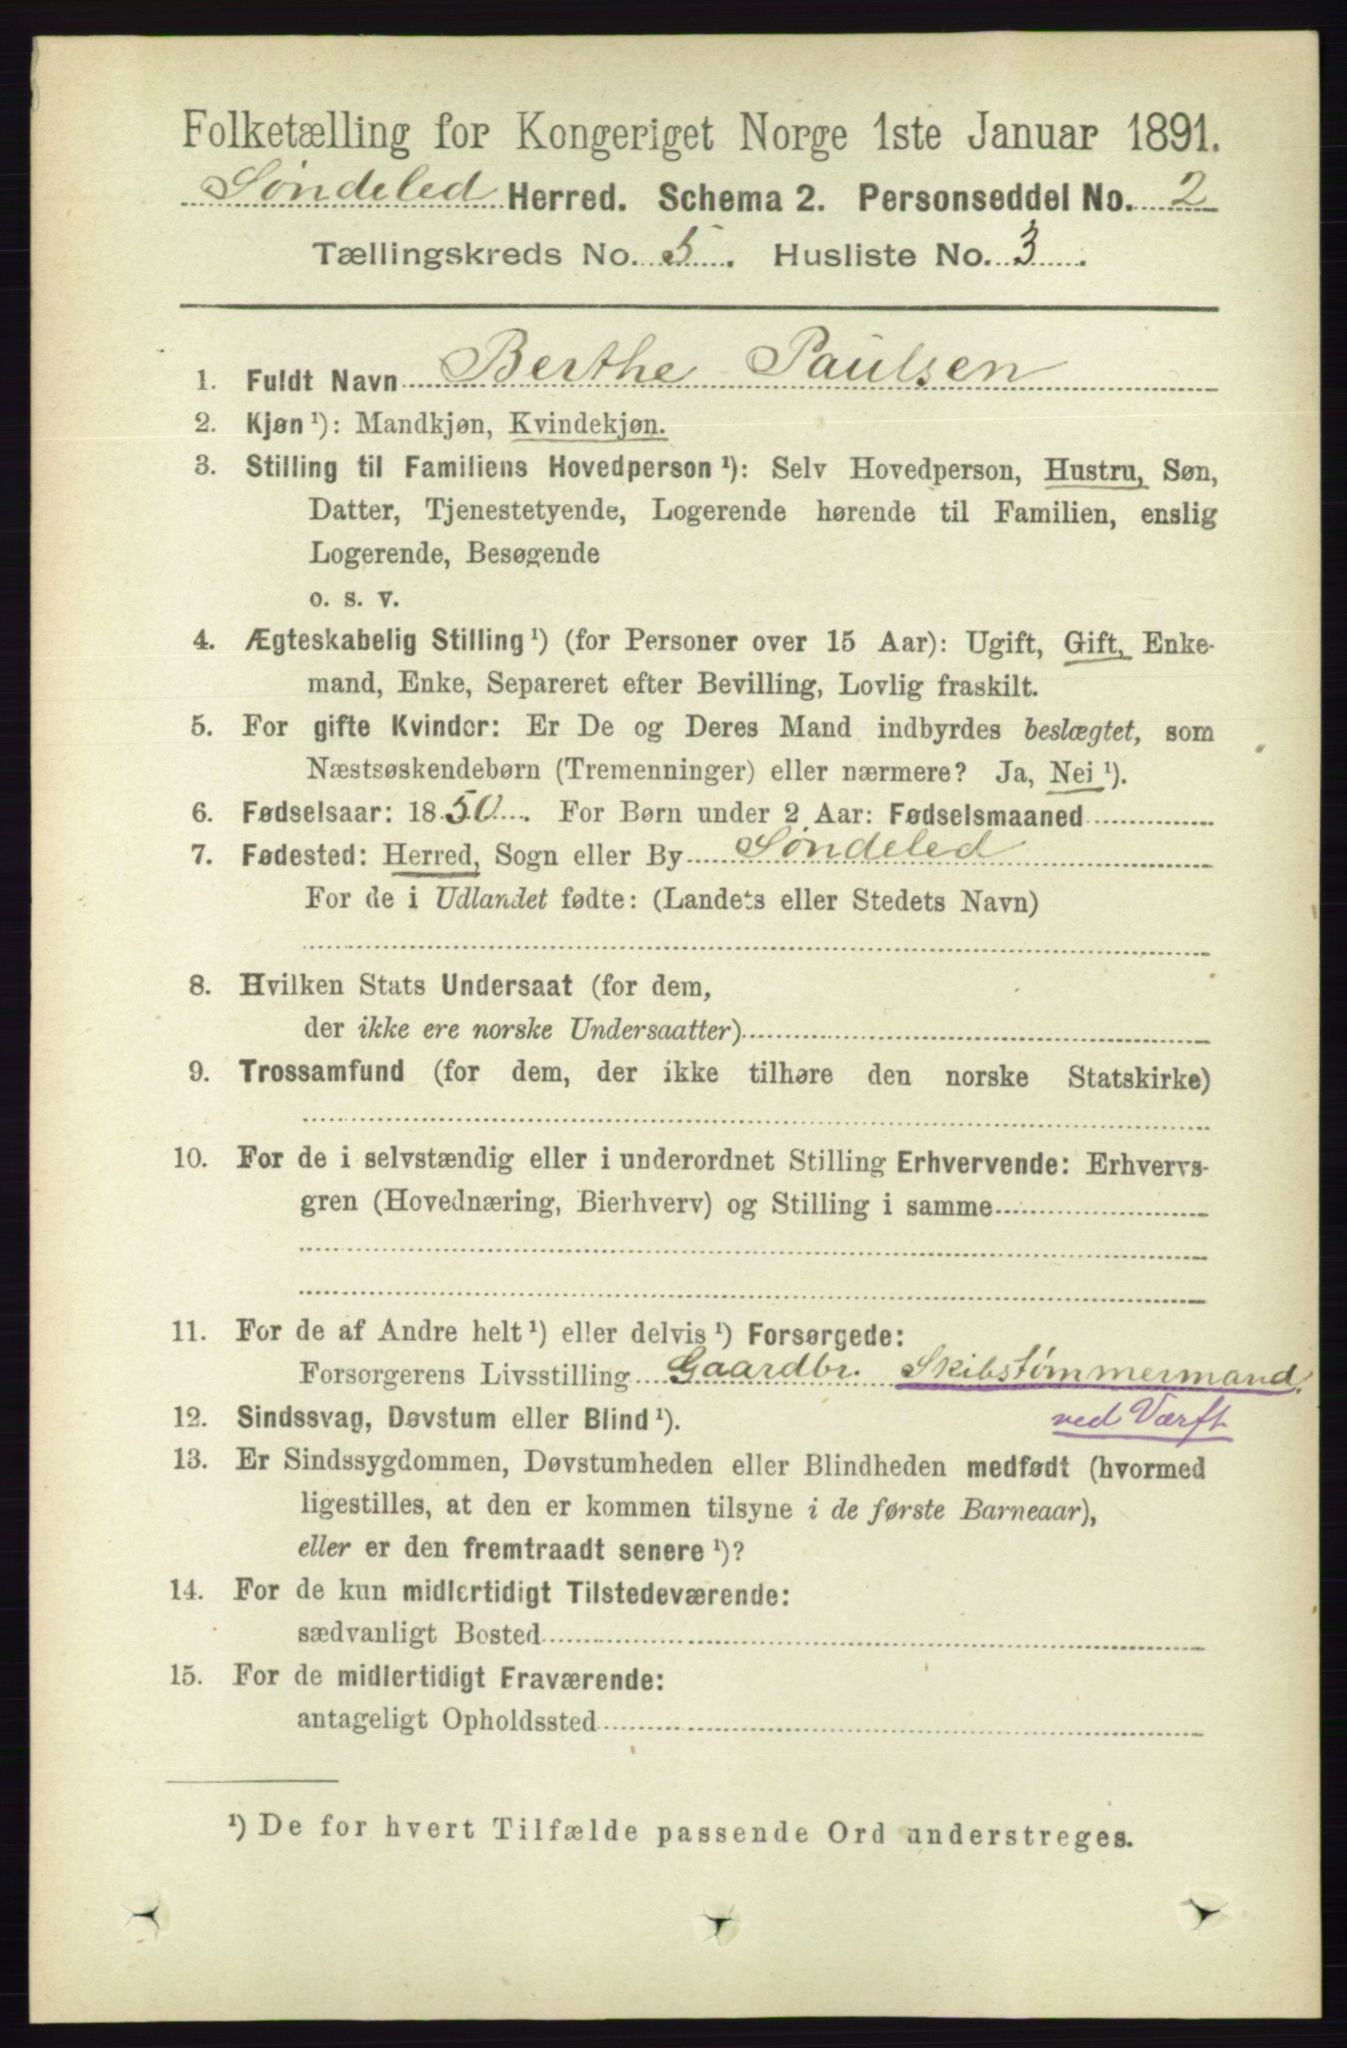 Folketælling for Kongeriget Norge 1ste Januar 1891.
Søndeled Herred. Schema 2. Personseddel No. 2
Tællingskreds No. 5. Husliste No. 3.
1. Fuldt Navn Berthe Paulsen
2. Kjøn ¹): Mandkjøn, Kvindekjøn.
3. Stilling til Familiens Hovedperson ¹): Selv Hovedperson, Hustru, Søn,
Datter, Tjenestetyende, Logerende hørende til Familien, enslig
Logerende, Besøgende
o. s. v.
4. Ægteskabelig Stilling ¹) (for Personer over 15 Aar): Ugift, Gift, Enke-
mand, Enke, Separeret efter Bevilling, Lovlig fraskilt.
5. For gifte Kvinder: Er De og Deres Mand indbyrdes beslægtet, som
Næstsøskendebørn (Tremenninger) eller nærmere? Ja, Nei ¹).
6. Fødselsaar: 1850. For Børn under 2 Aar: Fødselsmaaned
7. Fødested: Herred, Sogn eller By Søndeled
For de i Udlandet fødte: (Landets eller Stedets Navn)
8. Hvilken Stats Undersaat (for dem,
der ikke ere norske Undersaatter)
9. Trossamfund (for dem, der ikke tilhøre den norske Statskirke)
10. For de i selvstændig eller i underordnet Stilling Erhvervende: Erhvervs-
gren (Hovednæring, Bierhverv) og Stilling i samme
11. For de af Andre helt ¹) eller delvis ¹) Forsørgede:
Forsørgerens Livsstilling Gaardbr. Skibstømmermand.
12. Sindssvag, Døvstum eller Blind ¹). ved Værft
13. Er Sindssygdommen, Døvstumheden eller Blindheden medfødt (hvormed
ligestilles, at den er kommen tilsyne i de første Barneaar),
eller er den fremtraadt senere ¹)?
14. For de kun midlertidigt Tilstedeværende:
sædvanligt Bosted
15. For de midlertidigt Fraværende:
antageligt Opholdssted
¹) De for hvert Tilfælde passende Ord understreges.